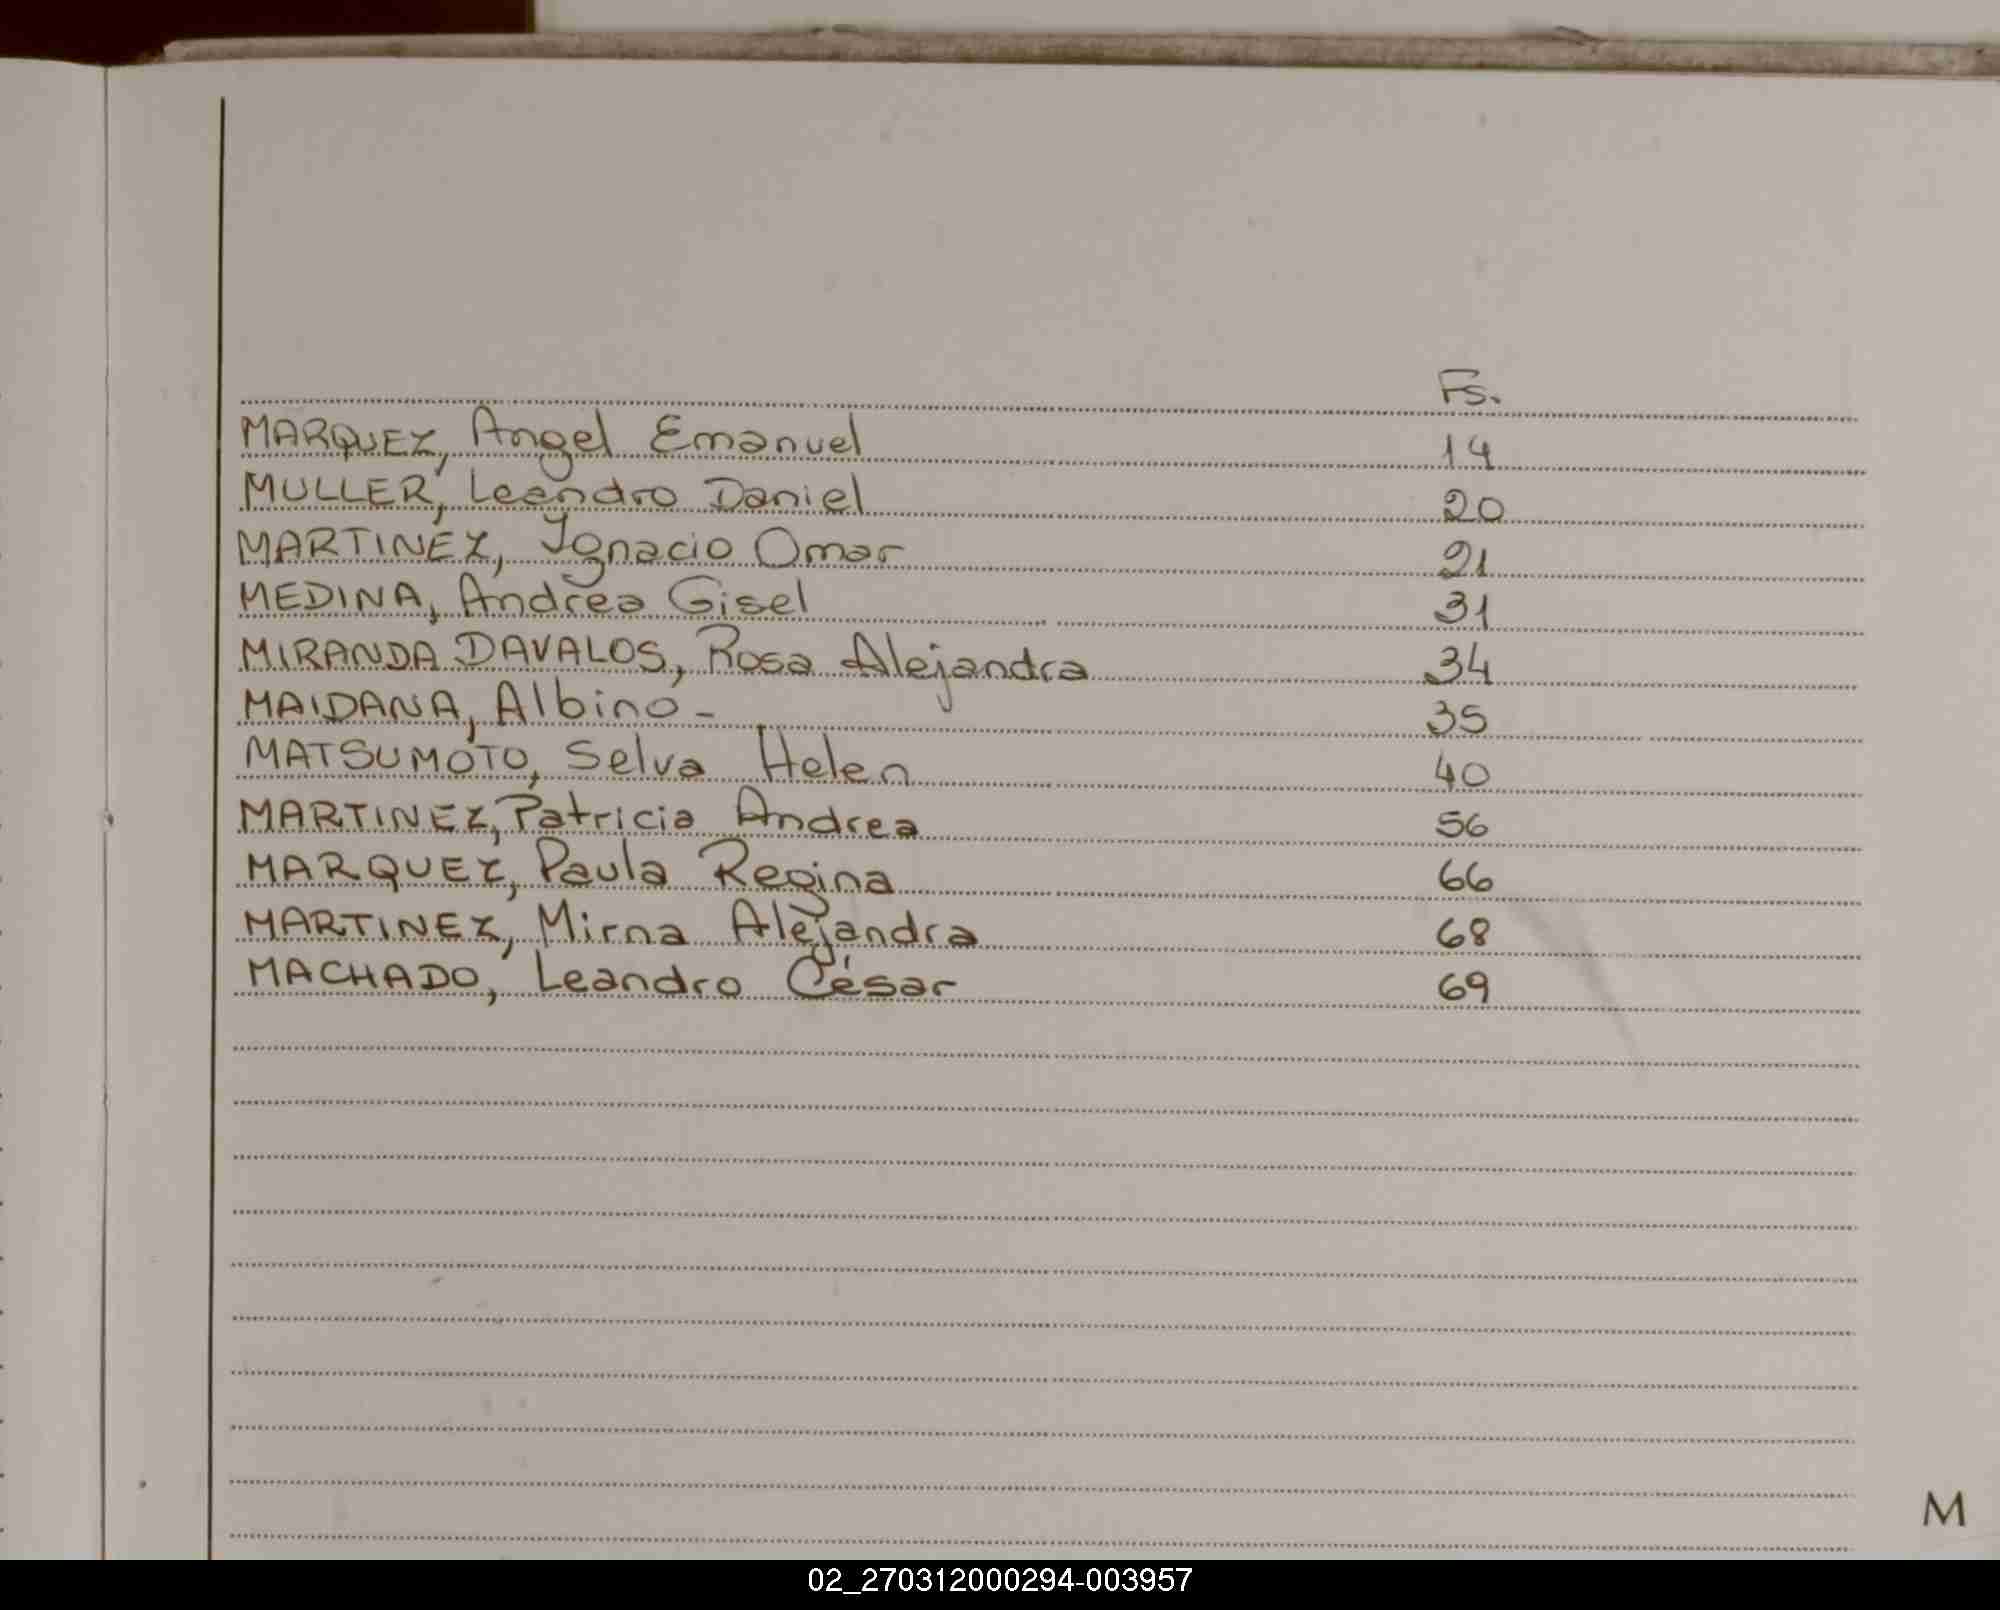 Fs.
MARQUEZ, Angel Emanuel 14
MULLER, Leandro Daniel 20
MARTINEZ, Ignacio Omar 21
MEDINA, Andrea Gisel 31
MIRANDA DAVALOS, Rosa Alejandra 34
MAIDANA, Albino - 35
MATSUMOTO, Selva Helen 40
MARTINEZ, Patricia Andrea 56
MARQUEZ, Paula Regina 66
MARTINEZ, Mirna Alejandra 68
MACHADO, Leandro César 69
M
02_270312000294-003957